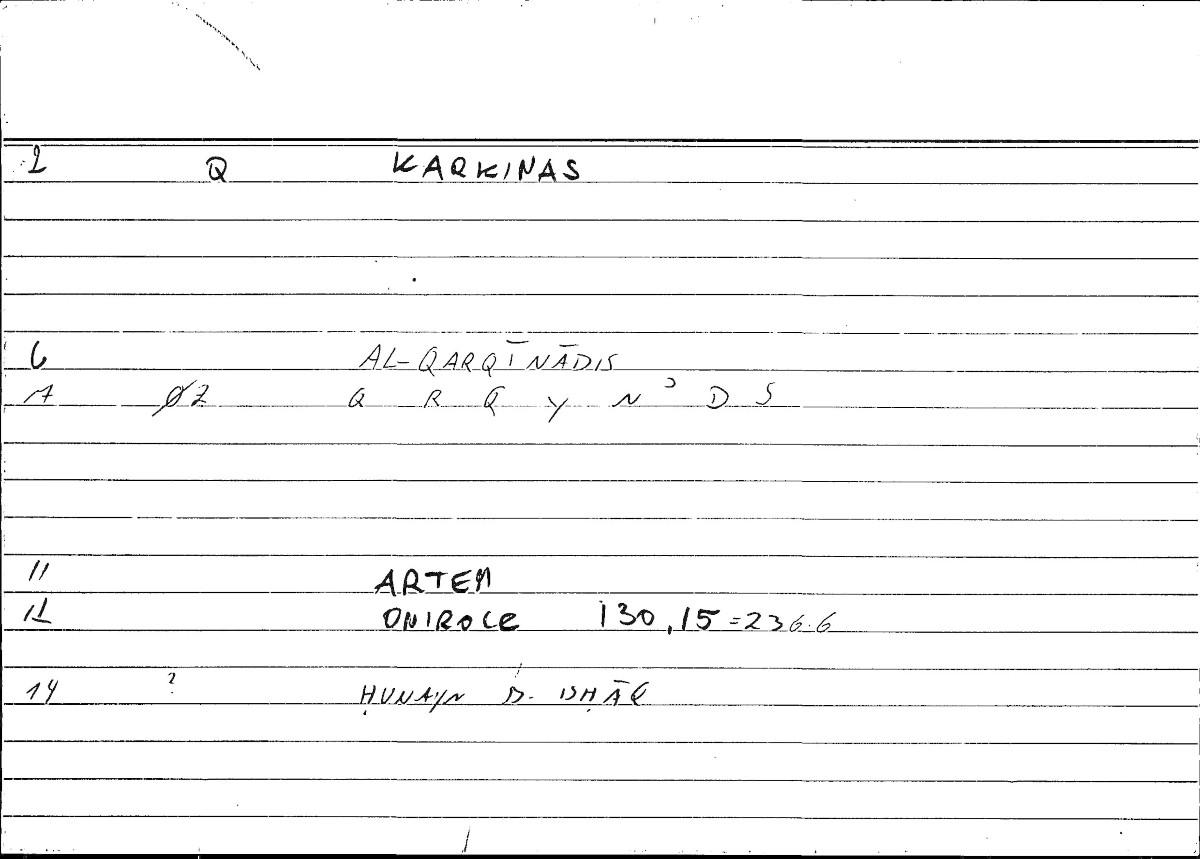 2 Q KARKINAS
6 AL-QARQĪNĀDIS
7 ØZ Q R Q Y N ʾ D S
11 ARTEM
12 ONIROCE 130,15=236.6
14 ? ḤUNAYN B. ISḤĀQ